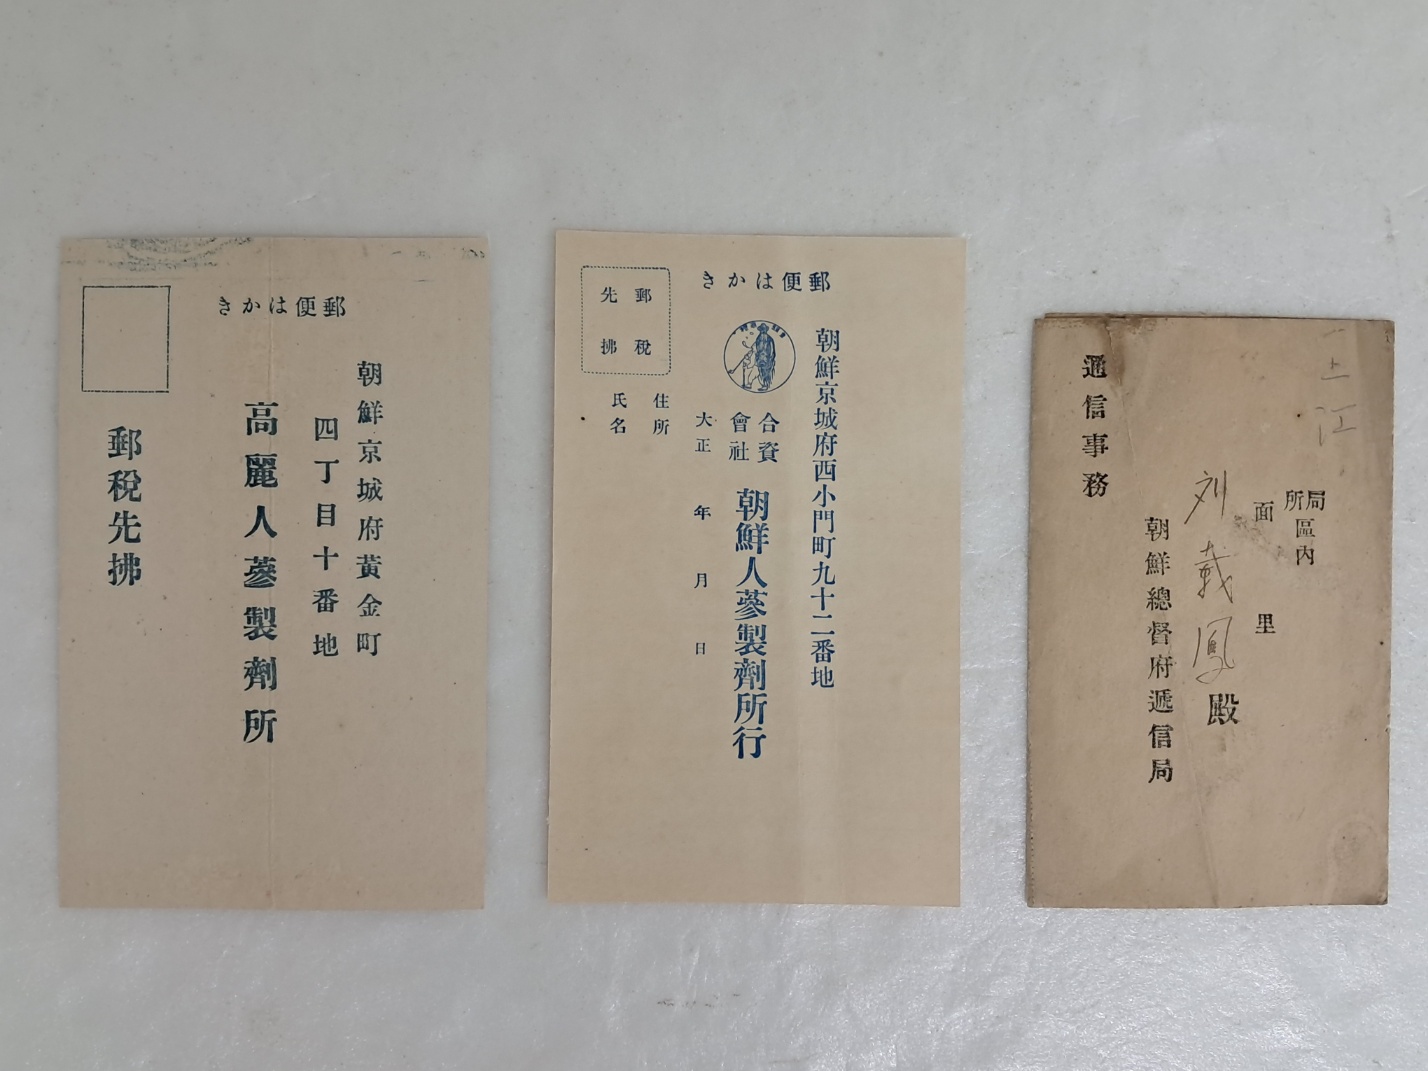 郵便はかき
朝鮮京城府黃金町
四丁目十番地
高麗人蔘製劑所
郵稅先拂
郵便はかき
郵稅
先拂
朝鮮京城府西小門町九十二番地
合資
會社
朝鮮人蔘製劑所行
大正 年 月 日
住所
氏名
局
所
區內
面 里
刘載鳳殿
朝鮮總督府遞信局
遞信事務